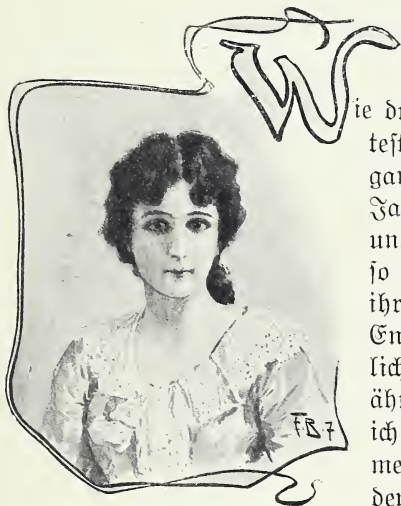 Wie dr
teſt
gar
Ja
un
ſo
ihr
En
lich
ähn
ich
me
der
FB·7